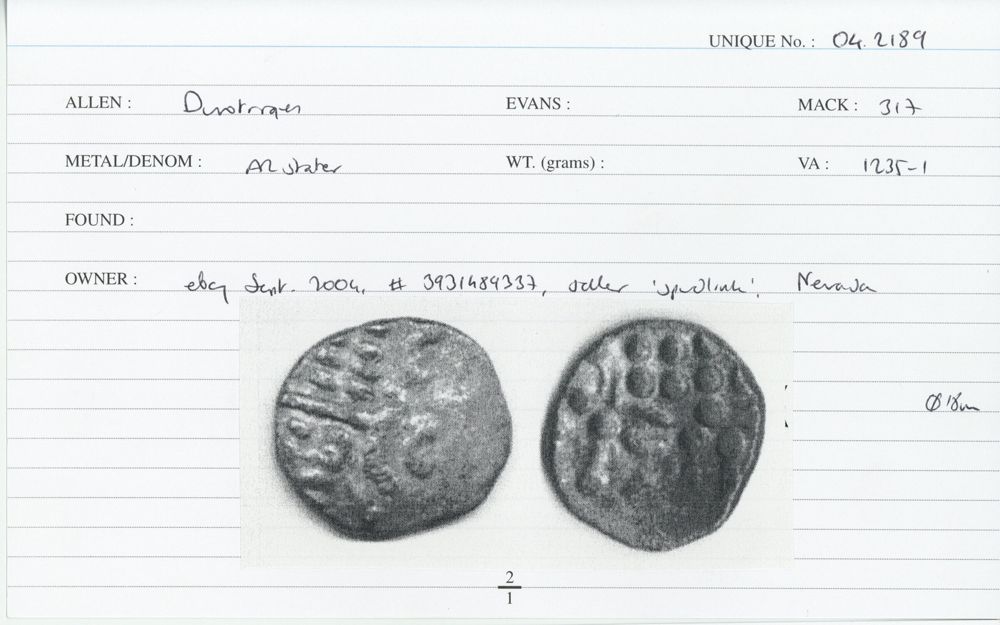 UNIQUE No. : 04.2189
ALLEN : Durotriges EVANS : MACK : 317
METAL/DENOM : AR stater WT. (grams) : VA : 1235-1
FOUND :
OWNER : ebay Sept. 2004, # 3931489337, seller Nevada
Ø 18mm
2
1